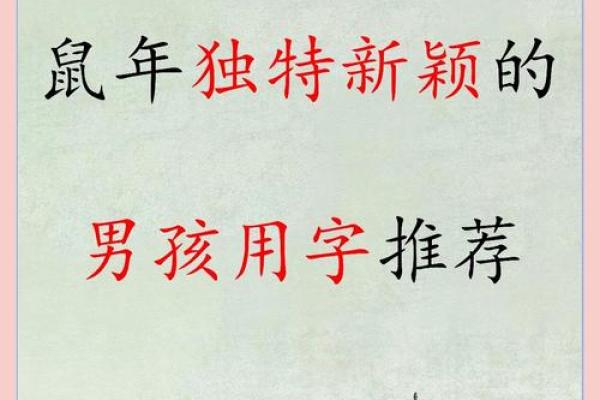 鼠年独特新颖的
男孩用字推荐